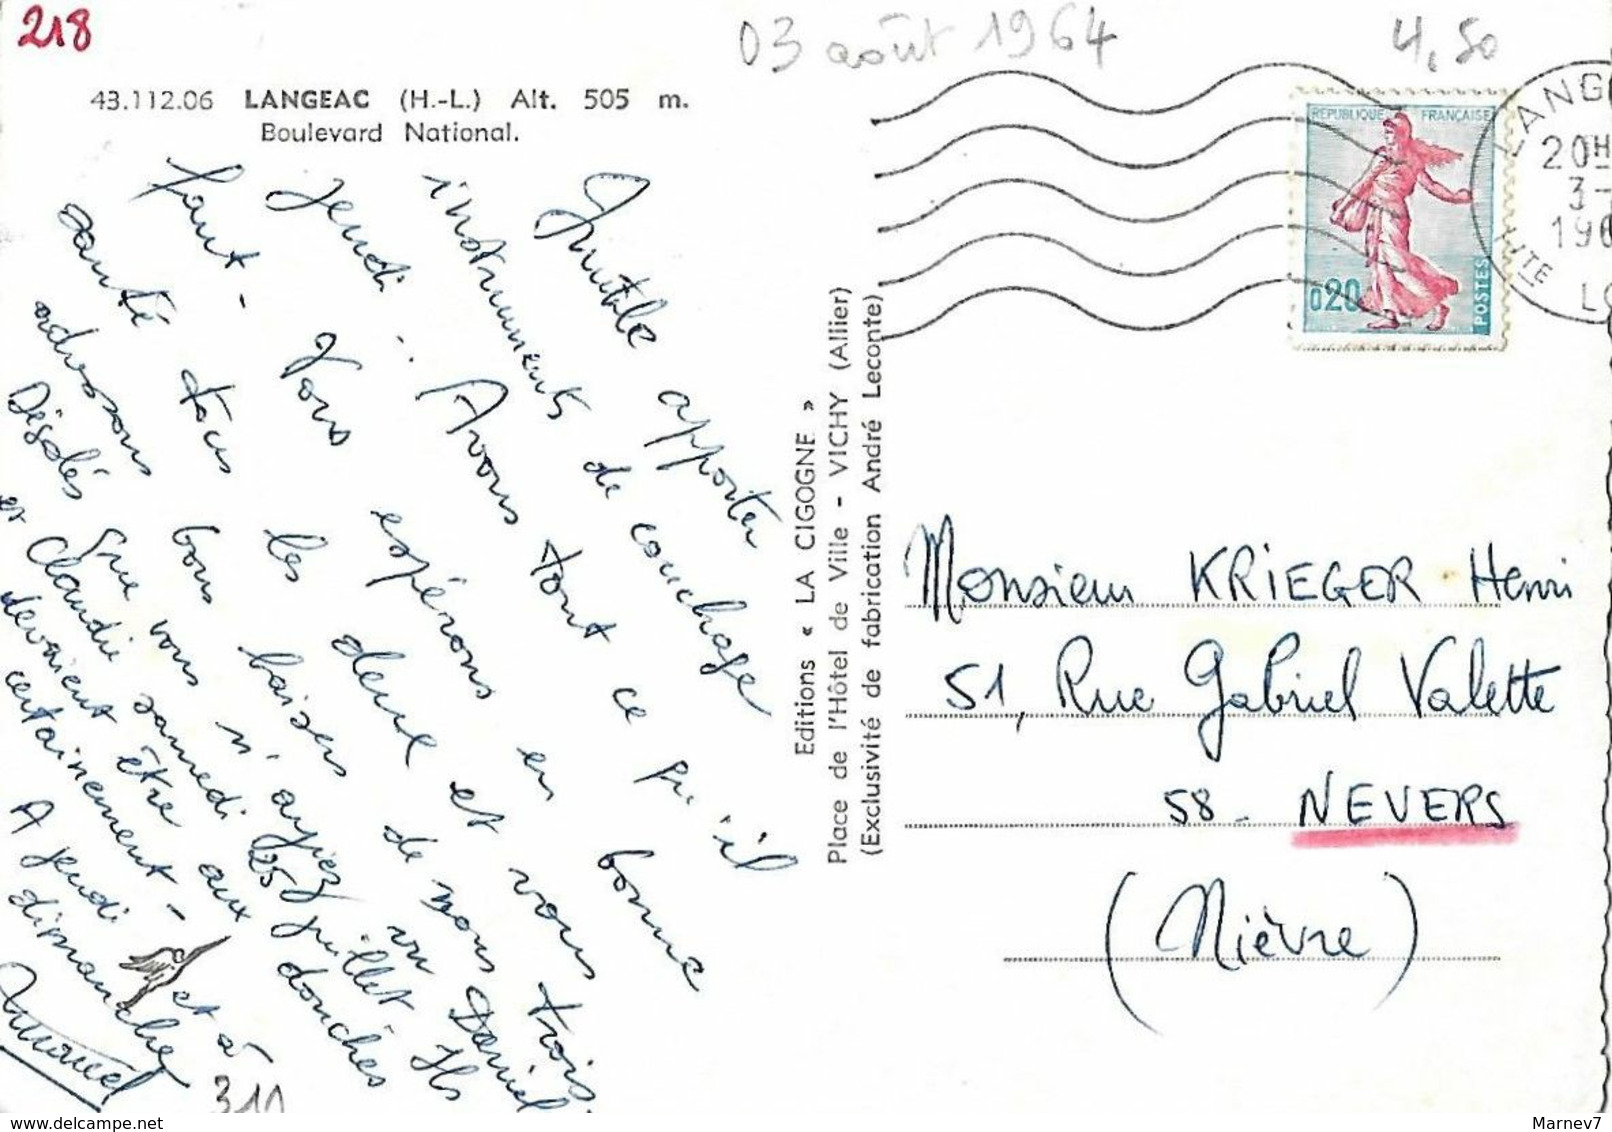 218
03 août 1964
4,50
43.112.06 LANGEAC (H.-L.) Alt. 505 m.
Boulevard National.
Inutile apporter
instruments de couchage
jeudi. Avons tout ce qu'il
faut - Vous espérons en bonne
santé tous les deux et vous
adressons bons baisers de nous trois
Désolés que vous n'ayiez vu Daniel
et Claudie samedi 25 juillet Ils
devaient être aux douches
certainement -
A jeudi et à
dimanche
311
Editions « LA CIGOGNE »
Place de l'Hôtel de Ville - VICHY (Allier)
(Exclusivité de fabrication André Leconte)
REPUBLIQUE FRANÇAISE
0,20
POSTES
LANG
20H
3-
196
HTE
LO
Monsieur KRIEGER Henri
51, Rue Gabriel Valette
58 - NEVERS
(Nièvre)
Marnev7